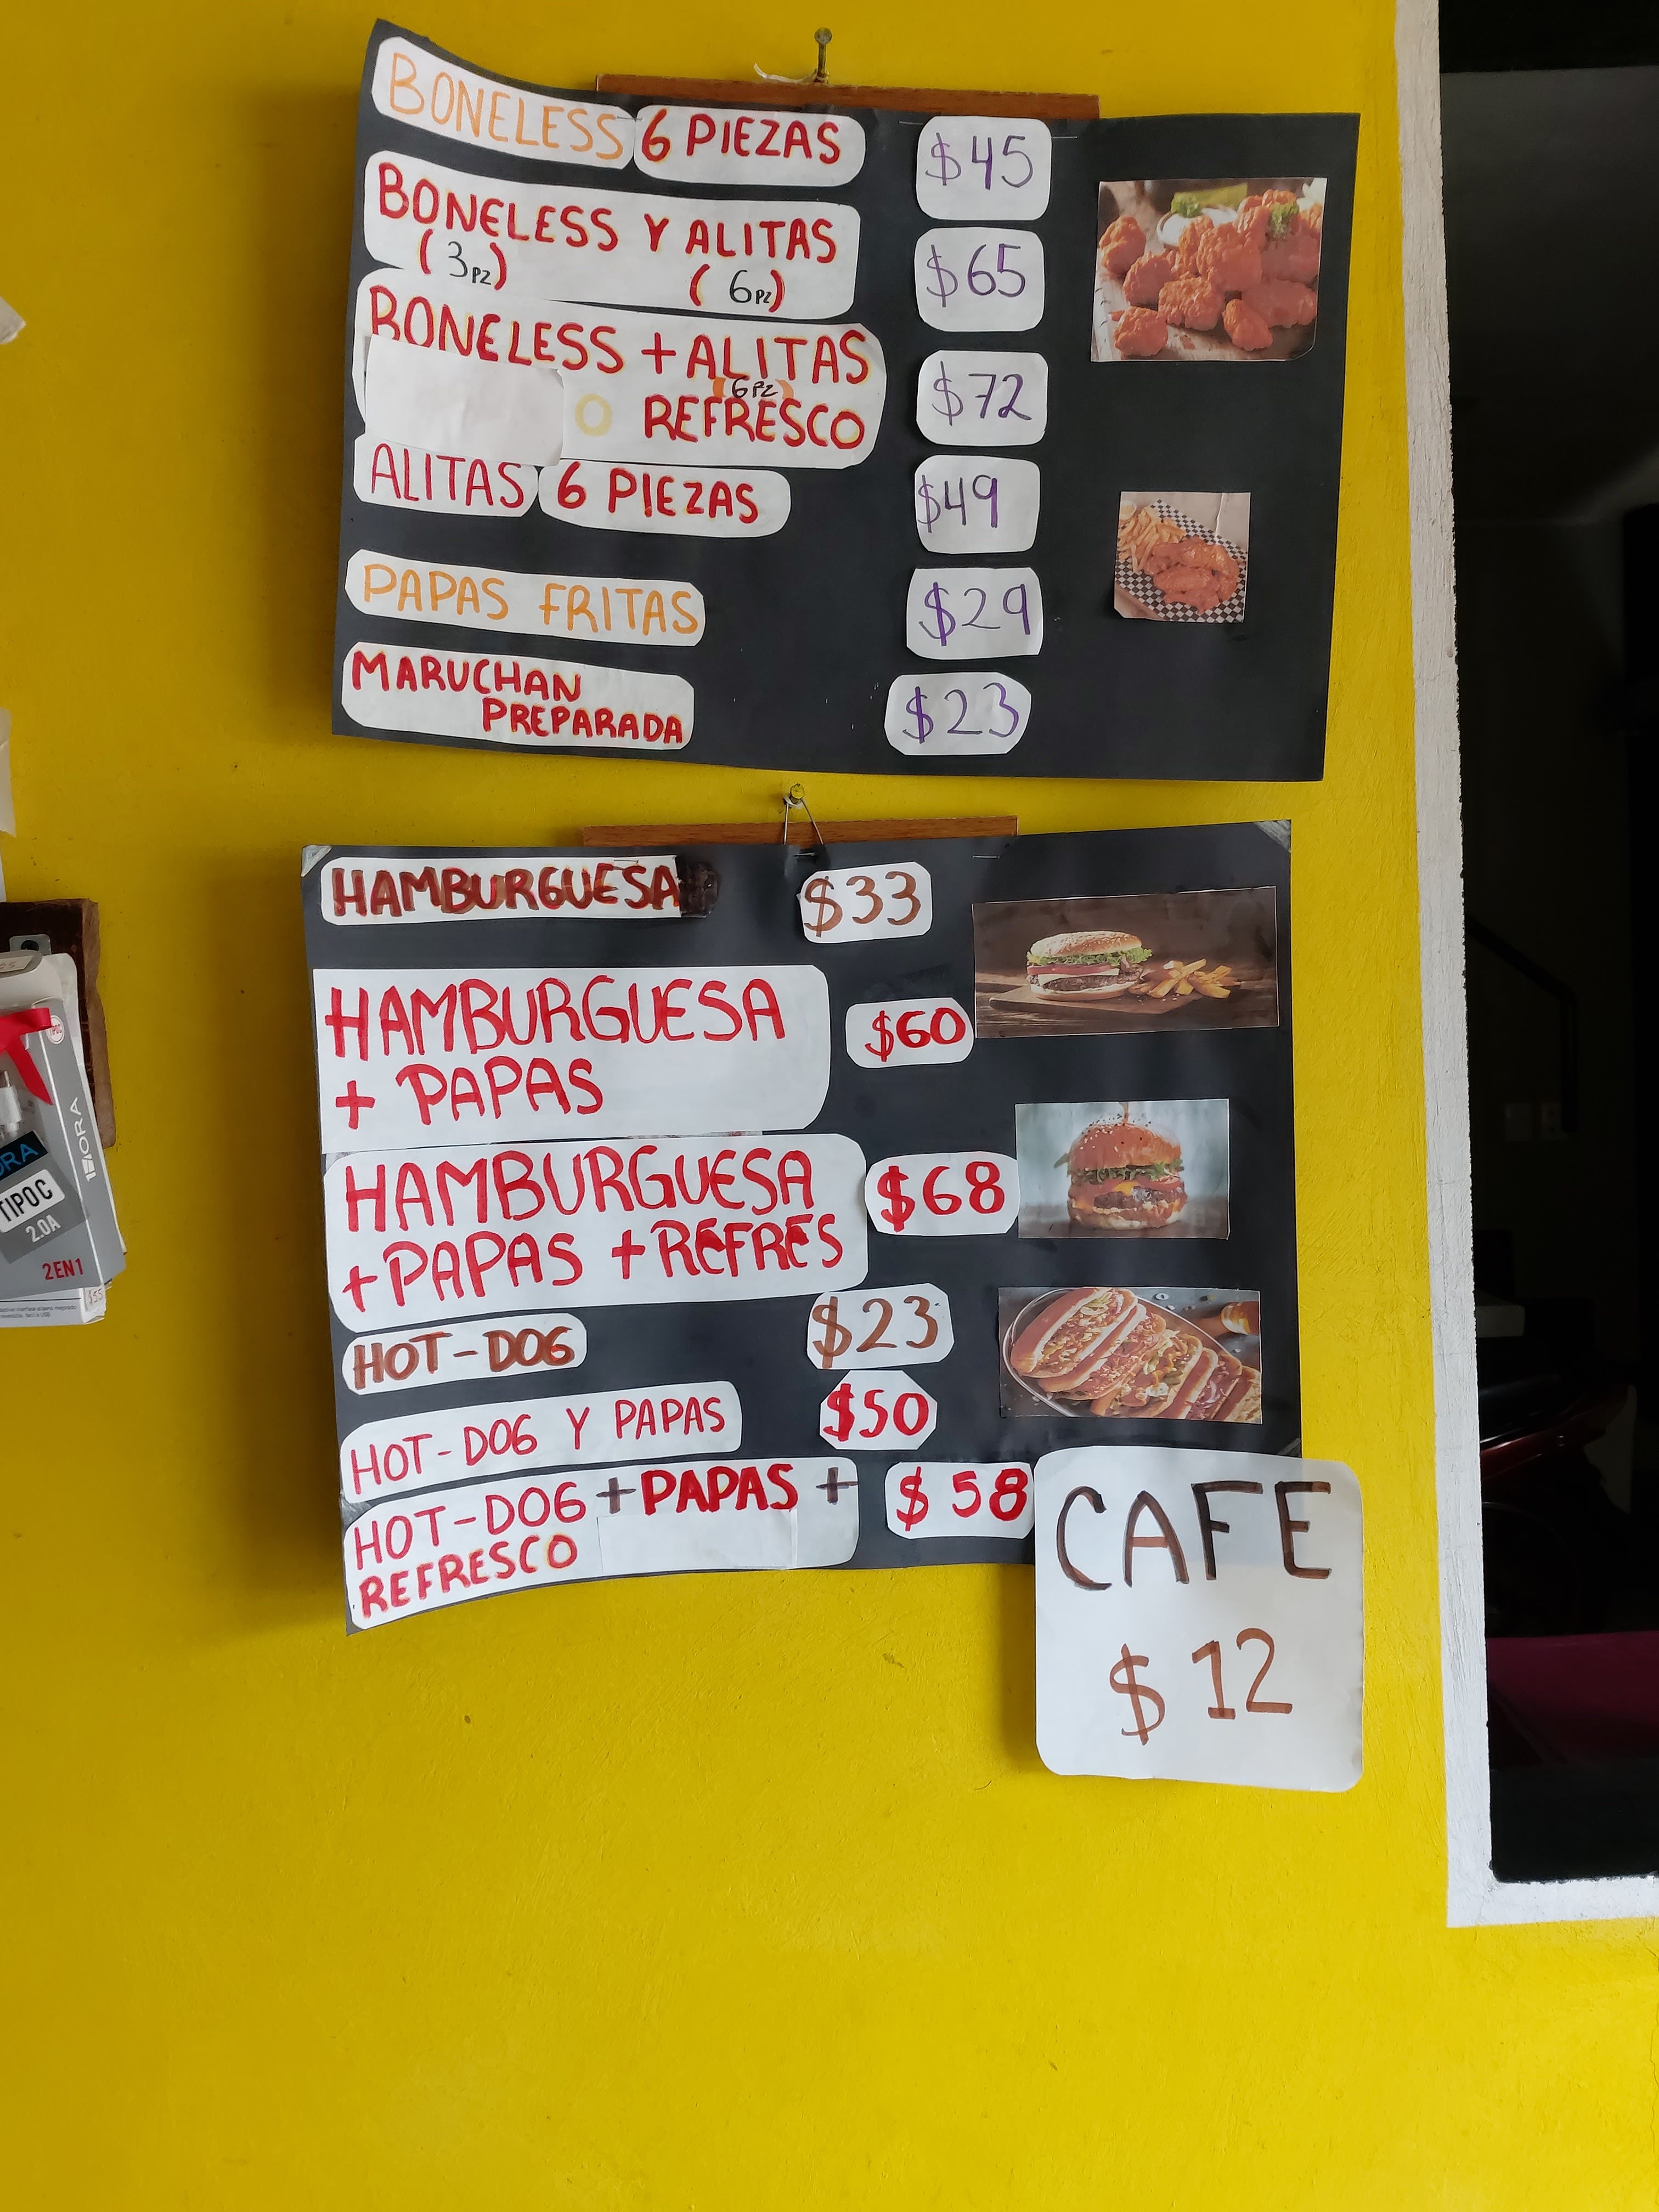 BONELESS 6 PIEZAS $45
BONELESS Y ALITAS $65
(3PZ) (6PZ)
BONELESS + ALITAS $72
(6PZ)
O REFRESCO
ALITAS 6 PIEZAS $49
PAPAS FRITAS $29
MARUCHAN $23
PREPARADA
HAMBURGUESA $33
HAMBURGUESA $60
+ PAPAS
HAMBURGUESA $68
+PAPAS +REFRES
HOT-DOG $23
HOT-DOG Y PAPAS $50
HOT-DOG + PAPAS + $58
REFRESCO
CAFE
$12
1HORA
TIPO C
2.0A
2EN1
$55